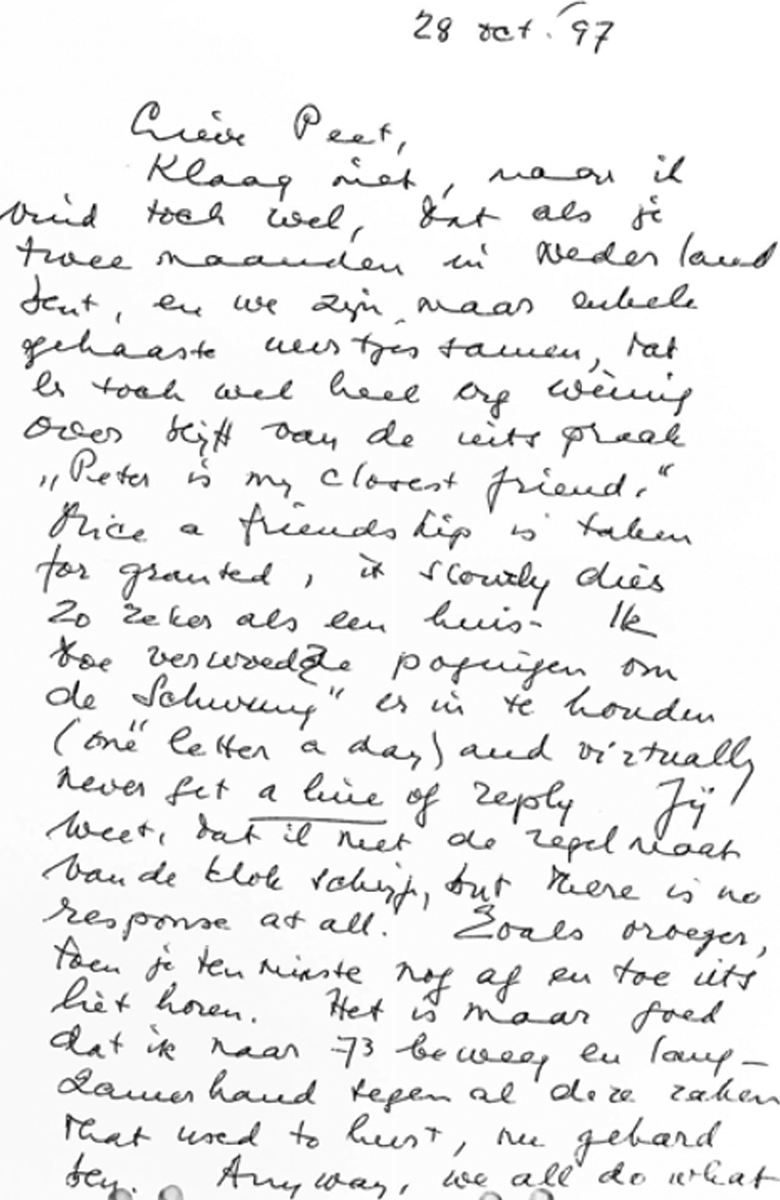 28 oct. '97
Lieve Peet,
Klaag niet, maar ik
vind toch wel, dat als je
twee maanden in Nederland
bent, en we zijn maar enkele
gehaaste uurtjes samen, dat
er toch wel heel erg weinig
over blijft van de uitspraak
„Peter is my closest friend."
Once a friendship is taken
for granted, it slowly dies
zo zeker als een huis- Ik
doe verwoedde pogingen om
de Schwung" er in te houden
(one" letter a day) and virtually
never get a line of reply Jij
weet, dat ik met de regelmaat
van de klok schrijf, but there is no
response at all. Zoals vroeger,
toen je ten minste nog af en toe iets
liet horen. Het is maar goed
dat ik naar 73 beweeg en lang-
zamerhand tegen al deze zaken
that used to hurt, nu gehard
ben. Anyway, we all do what